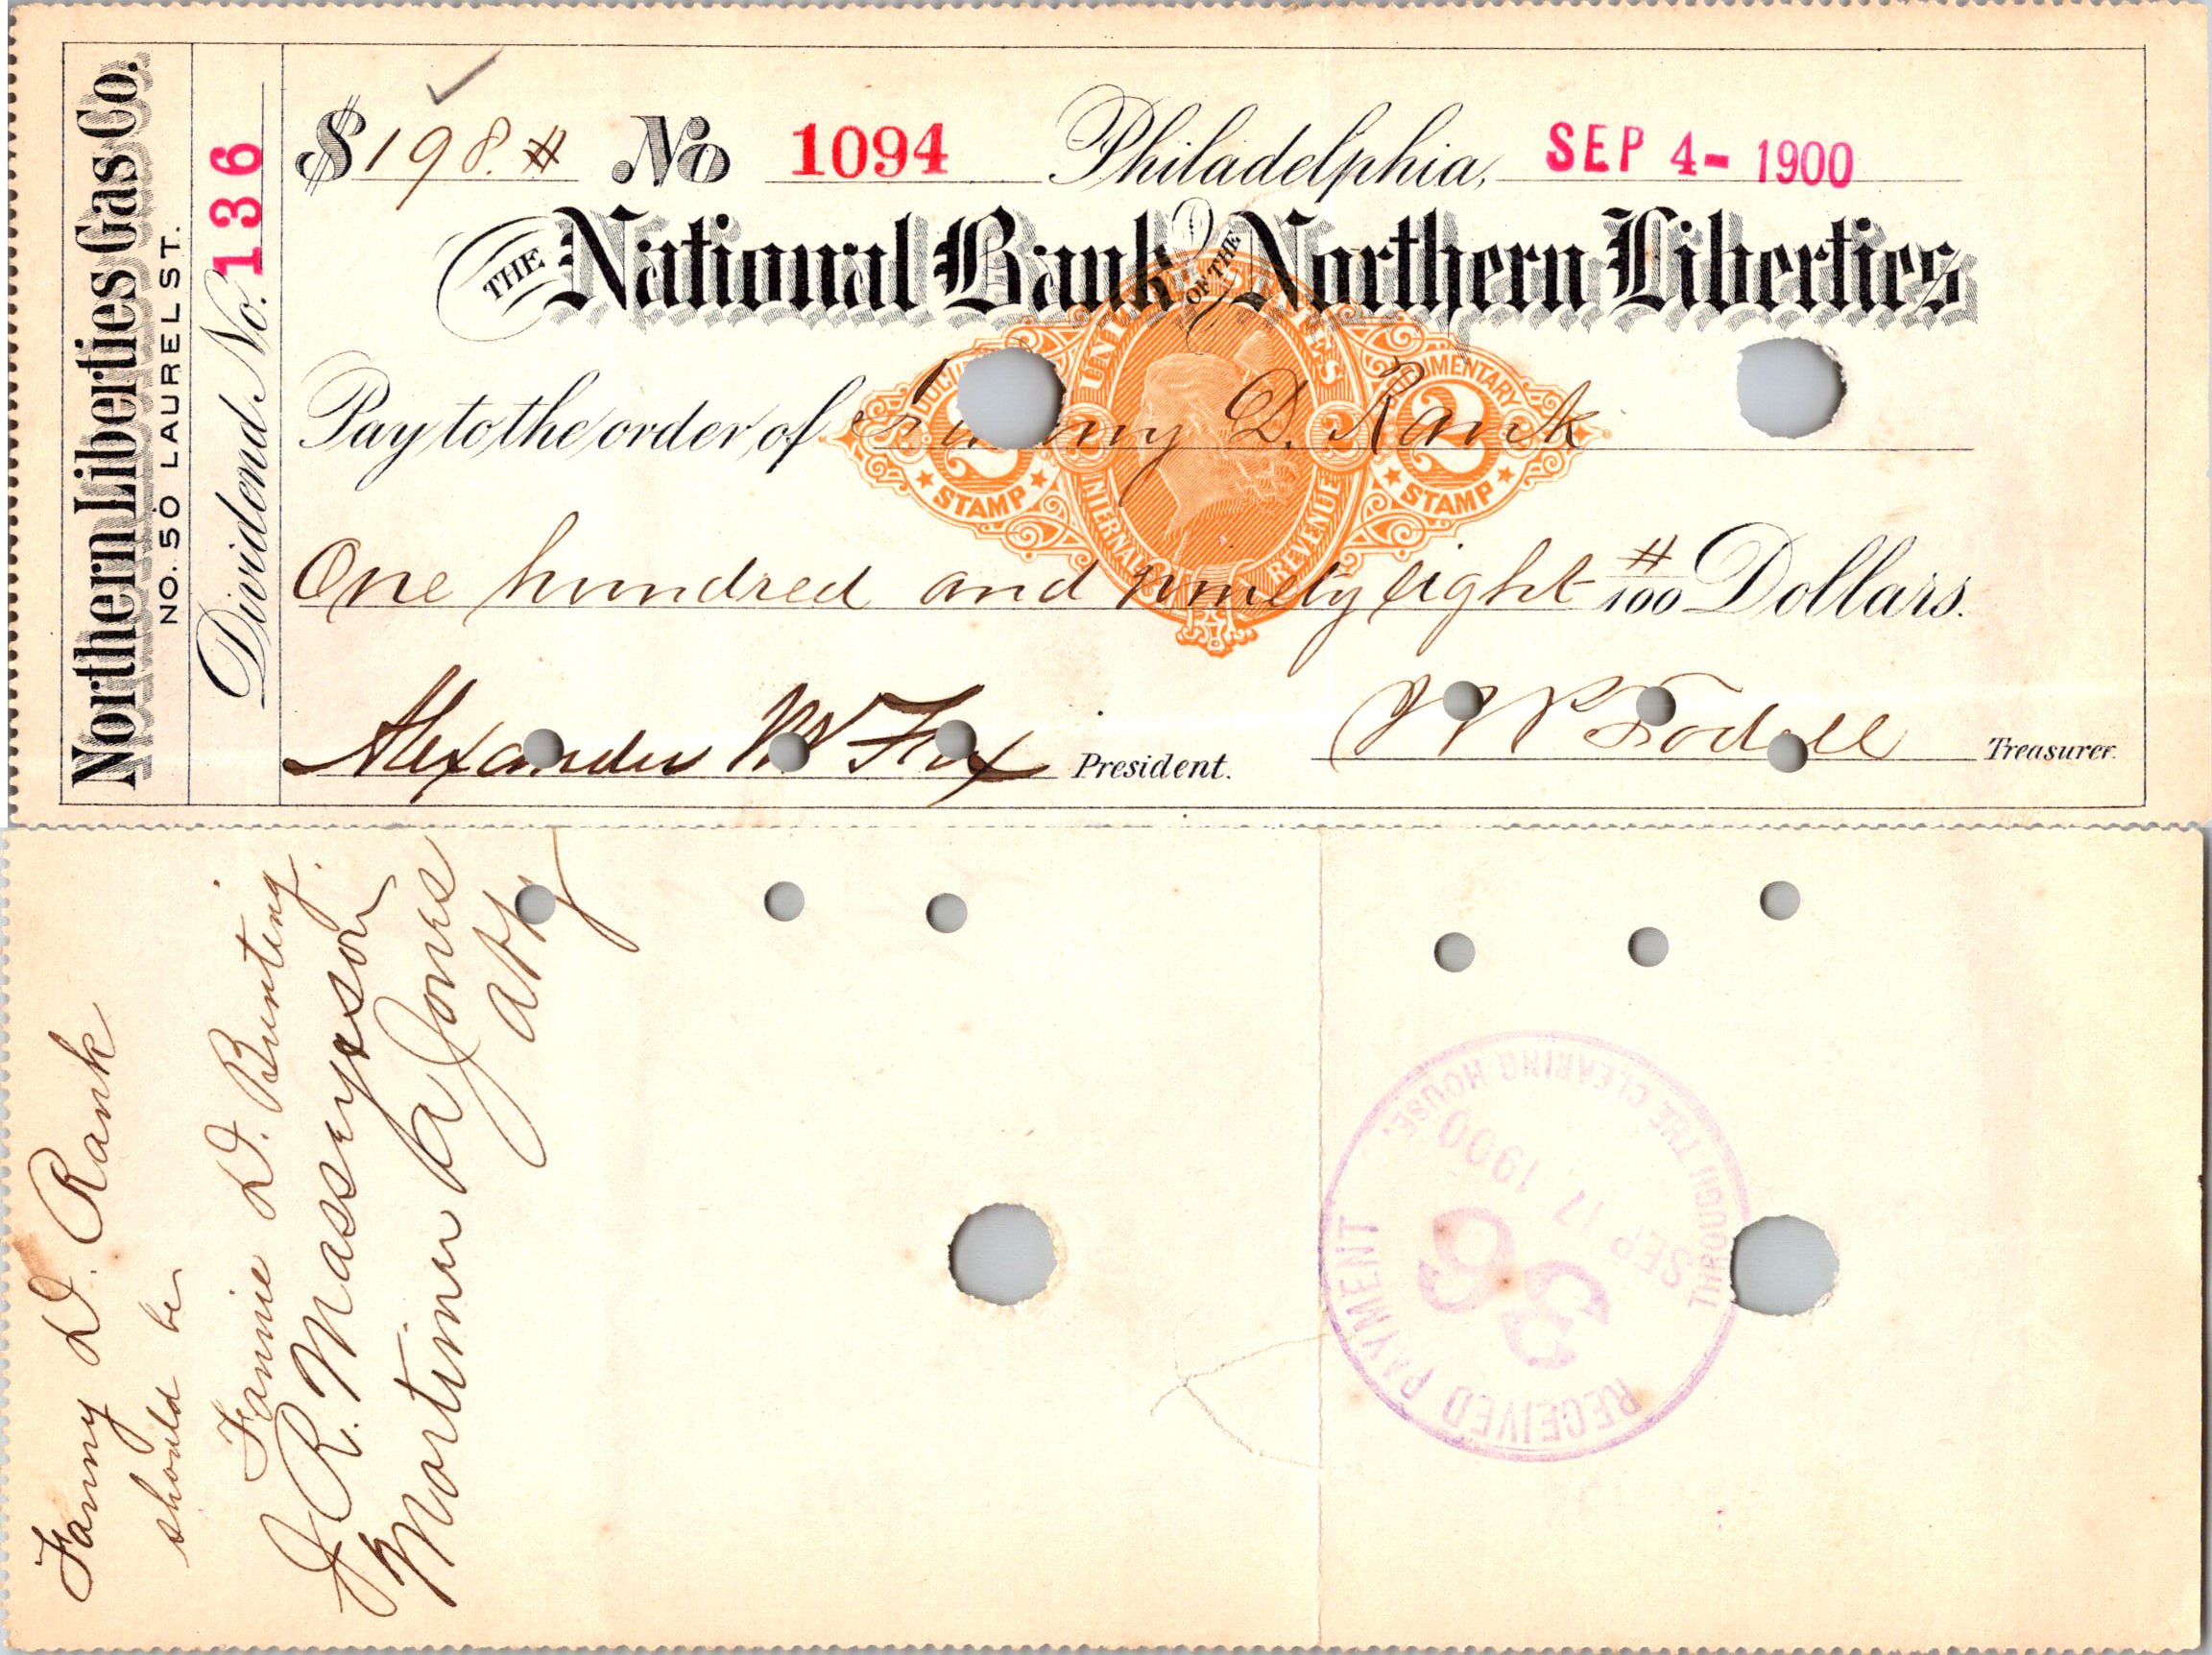 Northern Liberties Gas Co.
NO. 50 LAUREL ST.
Dividend No. 136
$198.# No 1094 Philadelphia, SEP 4- 1900
THE National Bank OF THE Northern Liberties
Pay to the order of Fanny D. Rank
UNITED STATES
DOCUMENTARY
2 2 2 2
STAMP STAMP
INTERNAL REVENUE
One hundred and ninety eight #/100 Dollars.
Alexander W Fox President.
Treasurer.
Fanny D. Rank
should be
Fannie D. Bunting.
J. R. Masseyeson
Mortimer A Jones
atty
RECEIVED PAYMENT
33
SEP 17 1900
THROUGH THE CLEARING HOUSE.